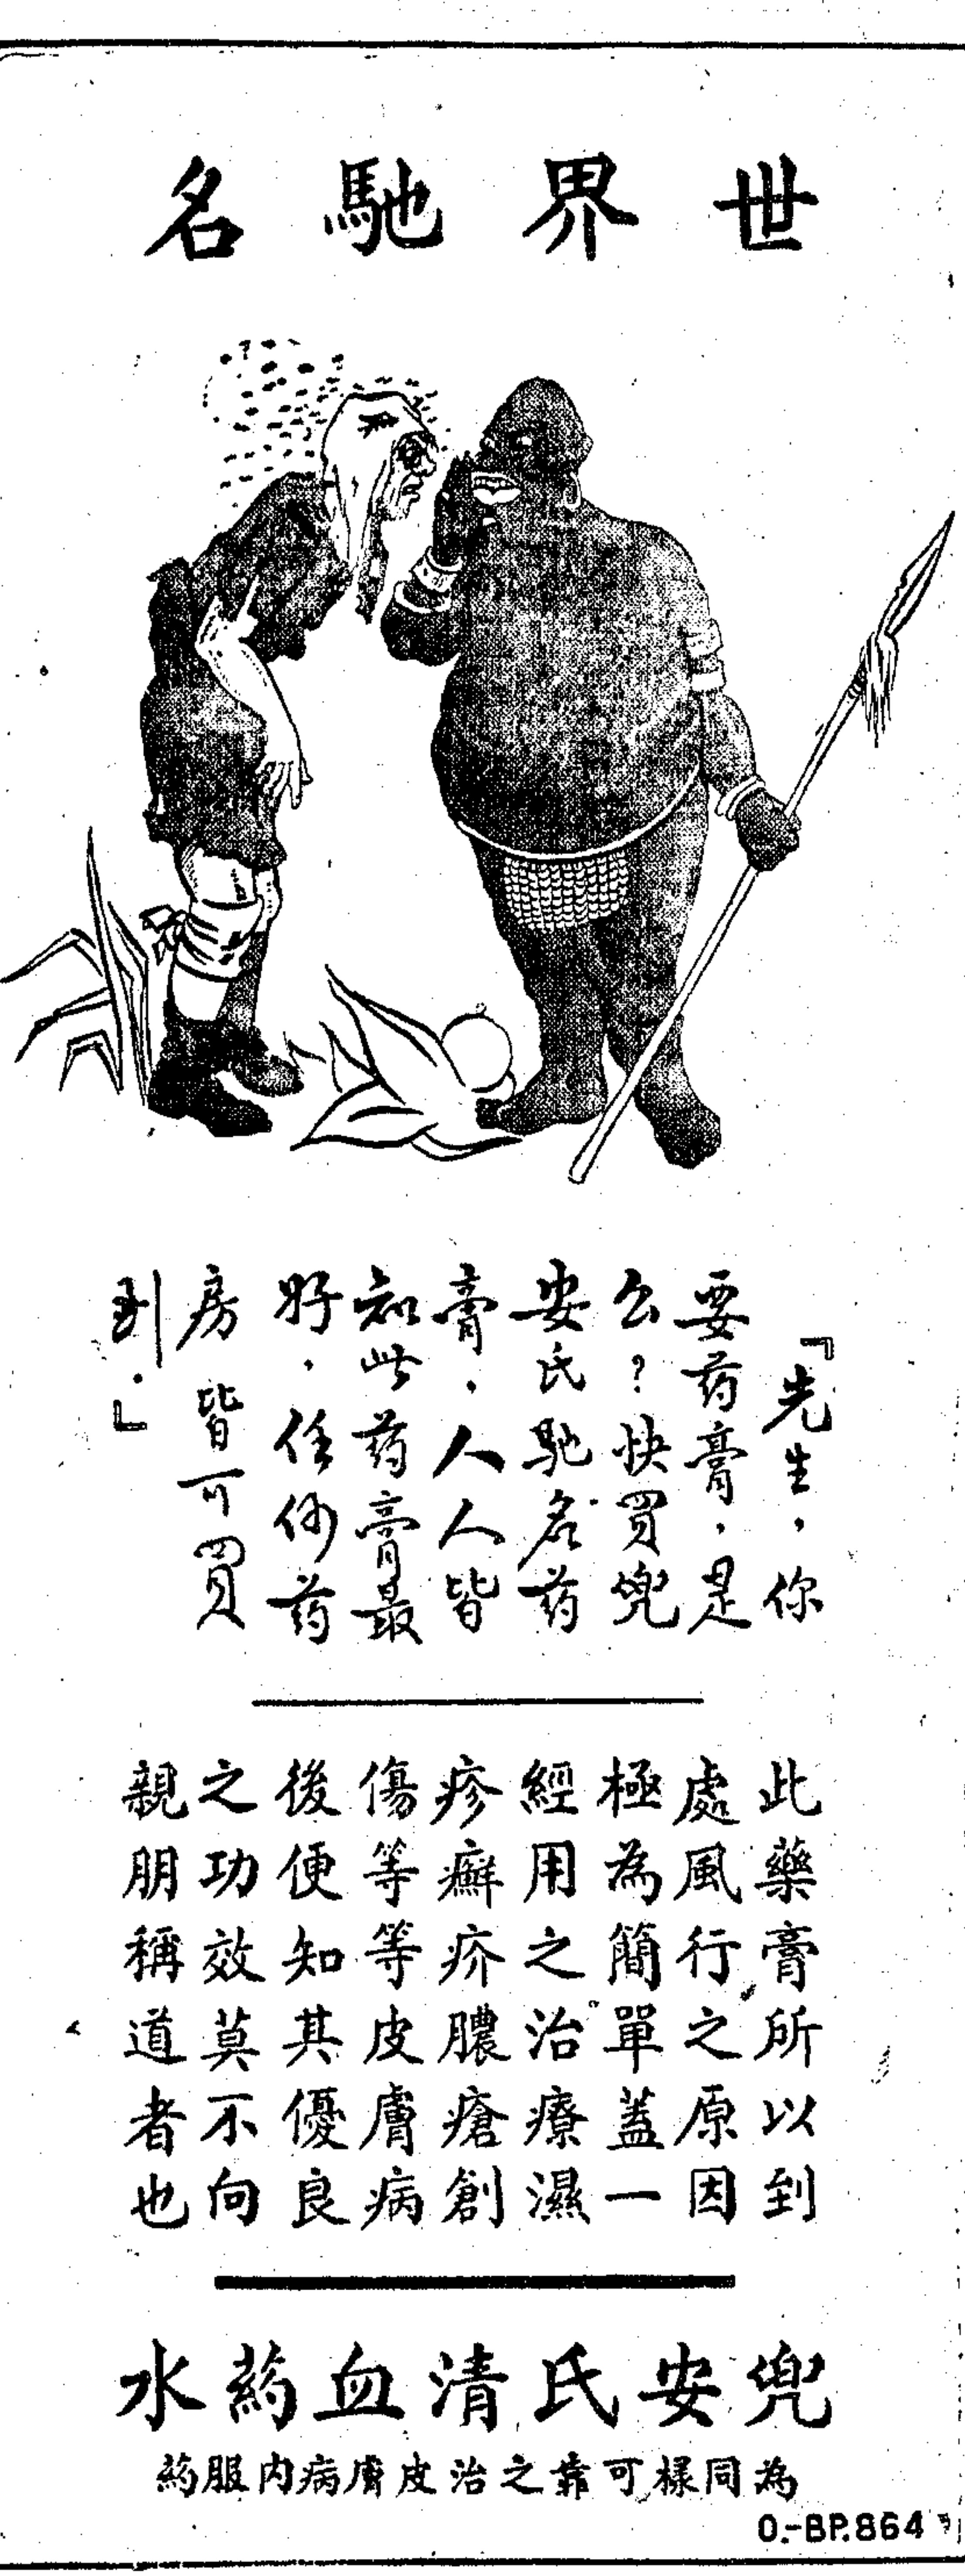 世界馳名
『先生，你
要药膏，是
么？快買兜
安氏馳名药
膏，人人皆
知此药膏最
好，任何药
房皆可買
到。』
此藥膏所以到
處風行之原因
極為簡單蓋一
經用之治療濕
疹癬疥膿瘡創
傷等等皮膚病
後便知其優良
之功效莫不向
親朋稱道者也
兜安氏清血葯水
為同樣可靠之治皮膚病內服葯
O.-BP.864